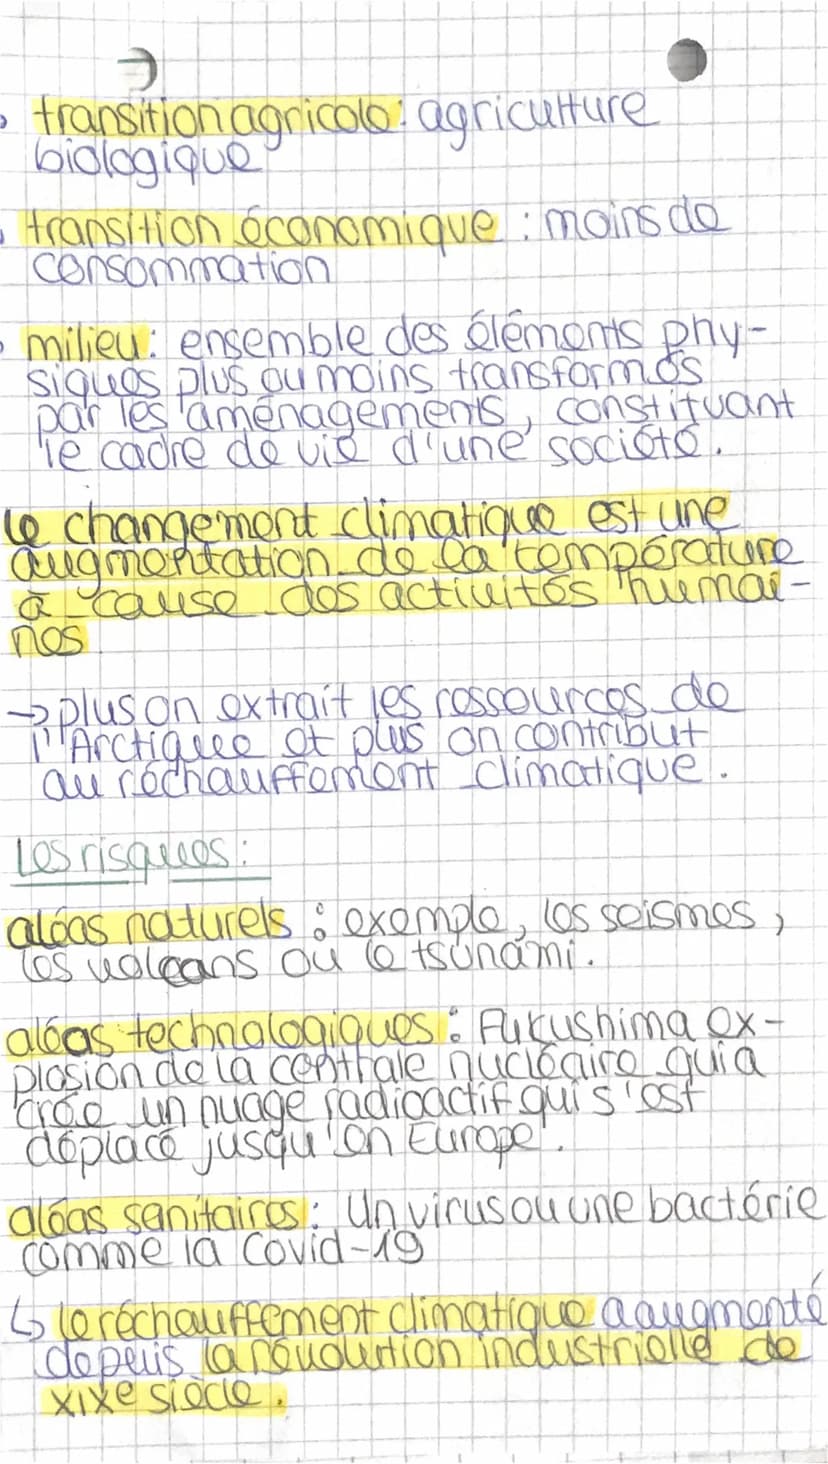 transition agricole : agriculture
biologique
transition économique : moins de
consommation
milieu : ensemble des éléments phy-
siques plus ou moins transformés
par les aménagements, constituant
le cadre de vie d'une société.
le changement climatique est une
augmentation de la température
à cause des activités humai-
nes
→ plus on extrait les ressources de
l'Arctique et plus on contribut
au réchauffement climatique.
Les risques :
aléas naturels : exemple, les seismes,
les volcans ou le tsunami.
aléas technologiques : Fukushima ex-
plosion de la centrale nucléaire qui a
crée un nuage radioactif qui s'est
déplacé jusqu'en Europe.
aléas sanitaires : Un virus ou une bactérie
comme la Covid-19
↳ le réchauffement climatique a augmenté
depuis la révolution industrielle de
XIXe siècle.